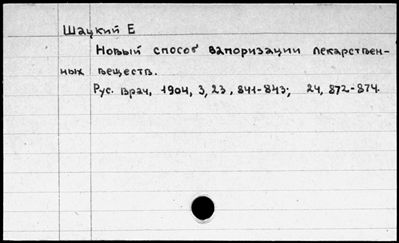 Шацкий Е
Новый способ вапоризации лекарствен-
ных веществ.
Рус. врач, 1904, 3, 23, 841-843; 24, 872-874.